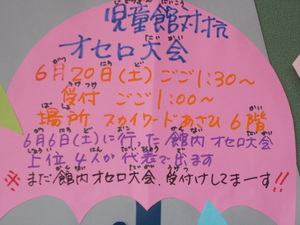 児童館対抗
オセロ大会
6月20日(土)ごご1:30〜
受付 ごご1:00〜
場所 スカイワードあさひ 6階
6月6日(土)に行った館内オセロ大会
上位4人が代表で出ます
※まだ館内オセロ大会、受付けしてまーす!!